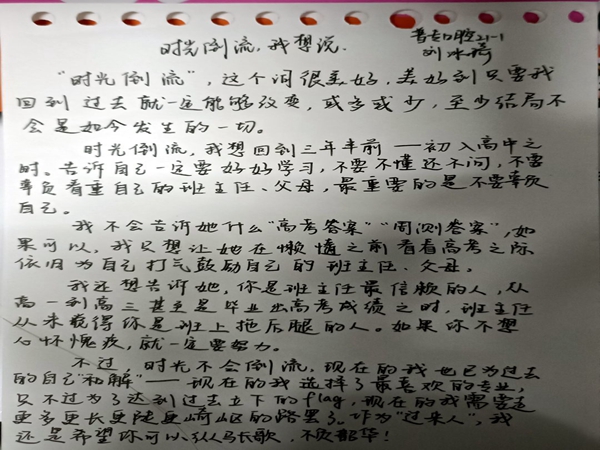 时光倒流，我想说.
普专口腔21-1
刘冰琦
“时光倒流”，这个词很美好，美好到只要我
回到过去就一定能够改变，或多或少，至少结局不
会是如今发生的一切。
时光倒流，我想回到三年半前——初入高中之
时。告诉自己一定要好好学习，不要不懂还不问，不要
辜负看重自己的班主任、父母，最重要的是不要辜负
自己。
我不会告诉她什么“高考答案”“周测答案”，如
果可以，我只想让她在懒惰之前看看高考之际
依旧为自己打气鼓励自己的班主任、父母。
我还想告诉她，你是班主任最信赖的人，从
高一到高三甚至是毕业出高考成绩之时，班主任
从未觉得你是班上拖后腿的人。如果你不想
心怀愧疚，就一定要努力。
不过，时光不会倒流，现在的我也已为过去
的自己“和解”——现在的我选择了最喜欢的专业，
只不过为了达到过去立下的flag，现在的我需要走
更多更长更陡更崎岖的路罢了。作为“过来人”，我
还是希望你可以纵马长歌，不负韶华！